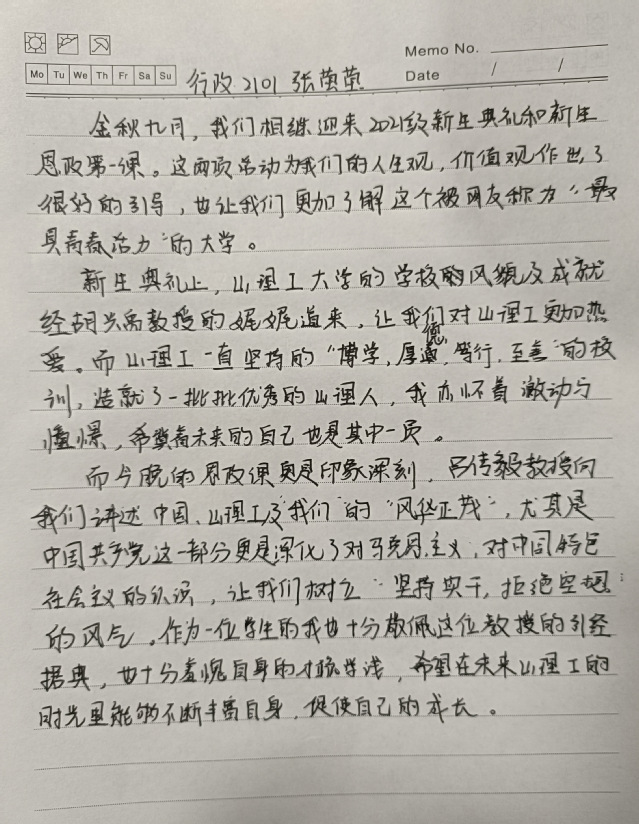 Memo No.
Mo Tu We Th Fr Sa Su
Date / /
行政2101 张萤萤
金秋九月，我们相继迎来2021级新生典礼和新生
思政第一课。这两项活动为我们的人生观，价值观作出了
很好的引导，也让我们更加了解这个被网友称为“最
具青春活力”的大学。
新生典礼上，山理工大学的学校的风貌及成就
经胡兴禹教授的娓娓道来，让我们对山理工更加热
爱。而山理工一直坚持的“博学，厚德，笃行，至善”的校
训，造就了一批批优秀的山理人，我亦怀着激动与
憧憬，希冀着未来的自己也是其中一员。
而今晚的思政课更是印象深刻，吕传毅教授向
我们讲述“中国、山理工及我们”的“风华正茂”，尤其是
中国共产党这一部分更是深化了对马克思主义，对中国特色
社会主义的认识，让我们树立“坚持实干，拒绝空想”
的风气。作为一位学生的我也十分敬佩这位教授的引经
据典，也十分羞愧自身的才疏学浅，希望在未来山理工的
时光里能够不断丰富自身，促使自己的成长。